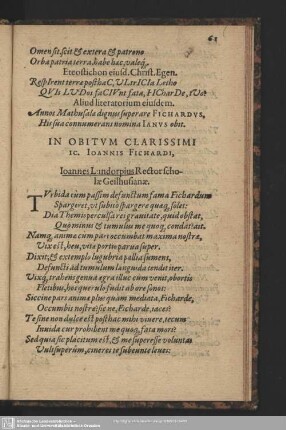 63
Omen sit, scit & extera, & patrone
Orba patria terra, habe hac, valeq́;.
Eteostichon eiusd. Christ. Egen.
RespIrent terræ posthaC,
QVIs LVDos faCIVnt fata, FICharDe, tVo
Aliud literatorium eiusdem.
Annos Mathusalæ dignus superare FICHARDVS,
Hic sua connumerans nomina IANVS obit.
IN OBITVM CLARISSIMI
IC. IOANNIS FICHARDI,
Ioannes Lundorpius Rector scho-
læ Geilhusanæ.
TVrbida cùm passim defunctum fama Fichardum
Spargeret, vt subitò spargere quæq; solet:
Dia Themis perculsa rei grauitate, quid obstat,
Quo minus & tumulus me quoq; condat? ait.
Namq; animæ cum pars occumbat maxima nostræ,
Vix est, heu, vitæ portio parua super.
Dixit: & extemplo lugubria pallia sumens,
Defuncti ad tumulum languida tendit iter.
Vixq; trahens genua ægra illuc cùm venit, abortis
Fletibus, hoc querulo fudit ab ore sonos:
Siccine pars animæ plus quàm mediata, Ficharde,
Occumbis nostræ? sicne, Ficharde, iaces?
Te sine non dulce est posthac mihi viuere, tecum
Inuida cur prohibent me quoq; fata mori?
Sed quia sic placitum est, & me superesse voluntas
Vult superûm, cineres te subeunte leues: